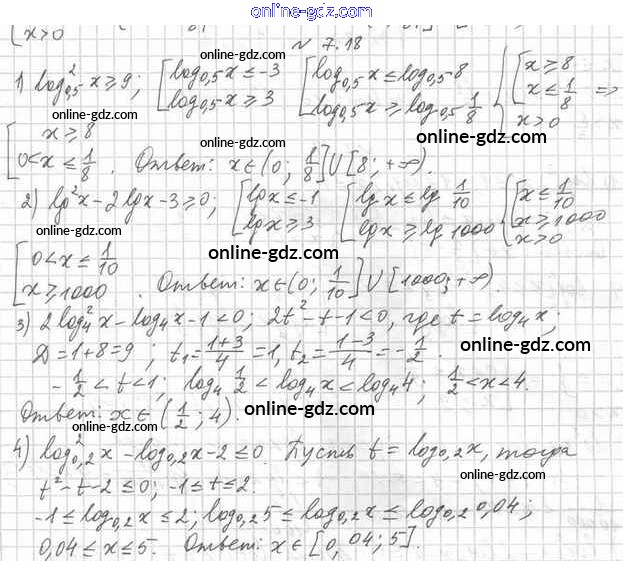 online-gdz.com
x>0
№ 7.18
1) log²₀,₅ x ≥ 9; [ log₀,₅ x ≤ -3 [ log₀,₅ x ≤ log₀,₅ 8 { [ x ≥ 8
log₀,₅ x ≥ 3 log₀,₅ x ≥ log₀,₅ 1/8 x ≤ 1/8 =>
x > 0
[ x ≥ 8
0 < x ≤ 1/8 . Ответ: x ∈ (0; 1/8] ∪ [8; +∞).
2) lg²x - 2 lg x - 3 ≥ 0; [ lg x ≤ -1 [ lg x ≤ lg 1/10 { [ x ≤ 1/10
lg x ≥ 3 lg x ≥ lg 1000 x ≥ 1000
x > 0
[ 0 < x ≤ 1/10
x ≥ 1000 . Ответ: x ∈ (0; 1/10] ∪ [1000; +∞).
3) 2 log²₄ x - log₄ x - 1 < 0; 2t² - t - 1 < 0, где t = log₄ x;
Д = 1+8 = 9 ; t₁ = (1+3)/4 = 1, t₂ = (1-3)/4 = -1/2 .
-1/2 < t < 1; log₄ 1/2 < log₄ x < log₄ 4; 1/2 < x < 4.
Ответ: x ∈ (1/2; 4).
4) log²₀,₂ x - log₀,₂ x - 2 ≤ 0. Пусть t = log₀,₂ x, тогда
t² - t - 2 ≤ 0; -1 ≤ t ≤ 2.
-1 ≤ log₀,₂ x ≤ 2; log₀,₂ 5 ≤ log₀,₂ x ≤ log₀,₂ 0,04;
0,04 ≤ x ≤ 5. Ответ: x ∈ [0,04; 5].
online-gdz.com
online-gdz.com
online-gdz.com
online-gdz.com
online-gdz.com
online-gdz.com
online-gdz.com
online-gdz.com
online-gdz.com
online-gdz.com
online-gdz.com
online-gdz.com
online-gdz.com